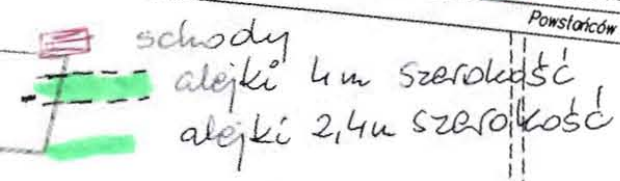 Powstańców
schody
alejki 4m szerokość
alejki 2,4m szerokość